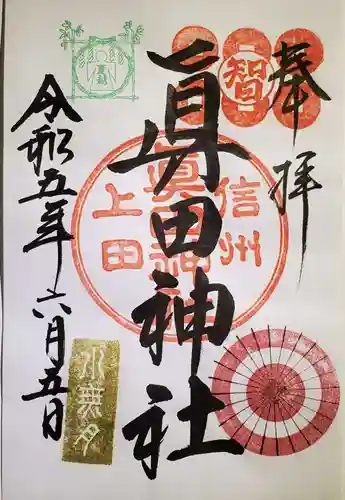 奉拝
智
眞田神社
信州
眞田神社
上田
令和五年六月五日
水無月